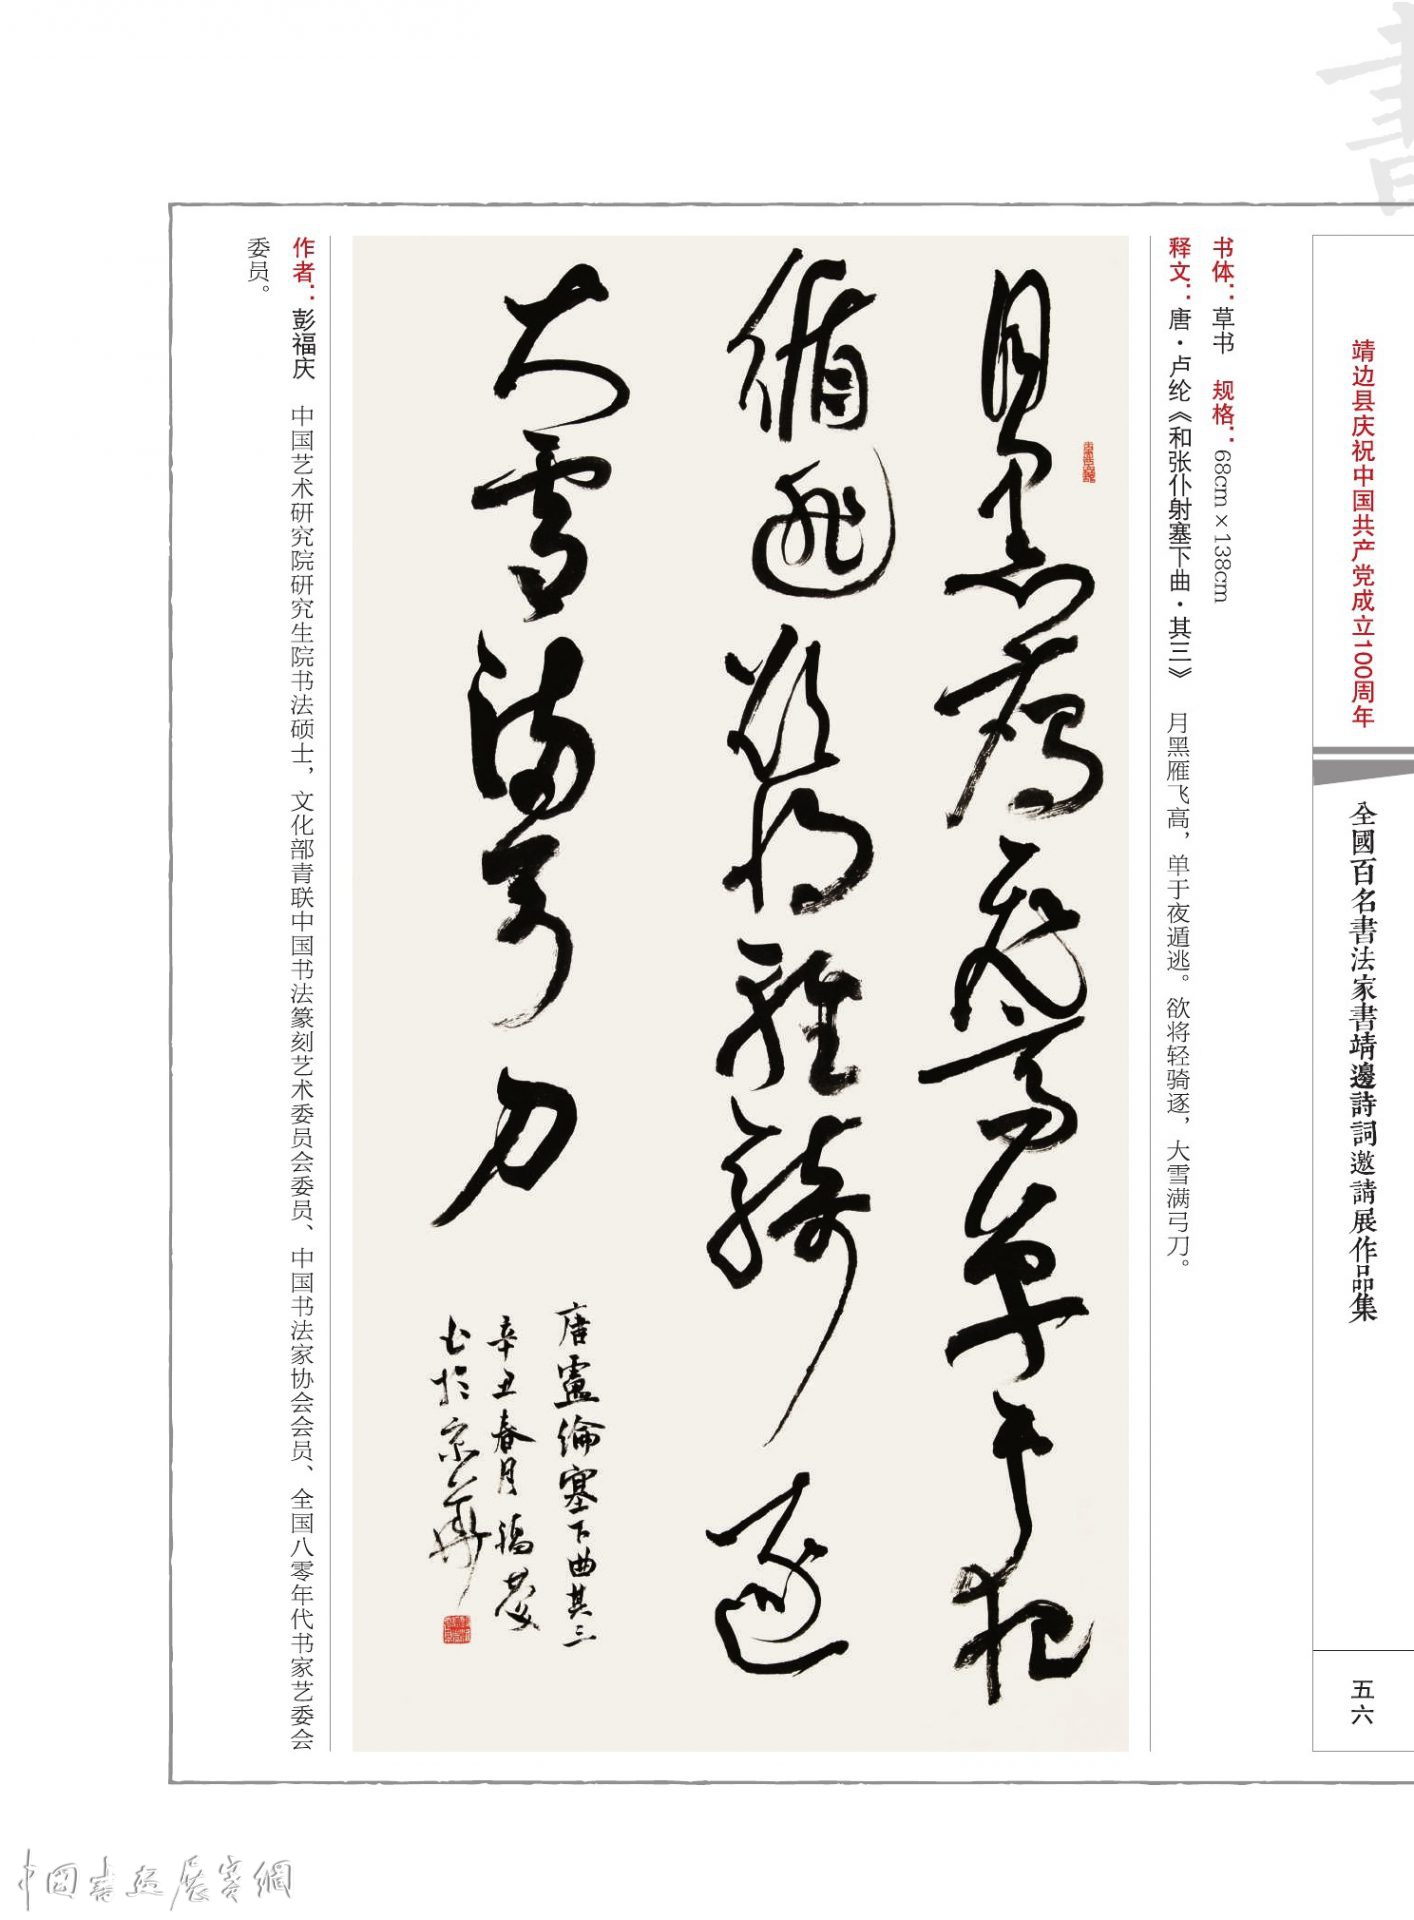 書
靖边县庆祝中国共产党成立100周年
全國百名書法家書靖邊詩詞邀請展作品集
五六
书体：草书 规格：68cm×138cm
释文：唐·卢纶《和张仆射塞下曲·其三》 月黑雁飞高，单于夜遁逃。欲将轻骑逐，大雪满弓刀。
月黑雁飛高單于夜
循逃欲將輕騎逐
大雪滿弓刀
唐盧倫塞下曲其三
辛丑春月福慶
書於京華
作者：彭福庆 中国艺术研究院研究生院书法硕士，文化部青联中国书法篆刻艺术委员会委员、中国书法家协会会员、全国八零年代书家艺委会
委员。
中國書畫展賽網